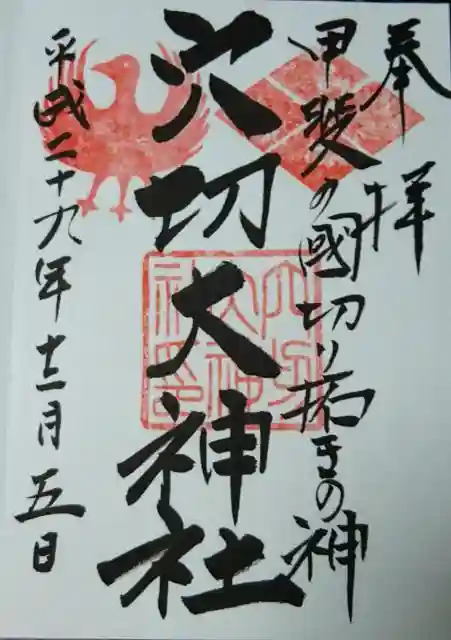 奉拝
甲斐の國切り拓きの神
穴切大神社
平成二十九年十二月五日